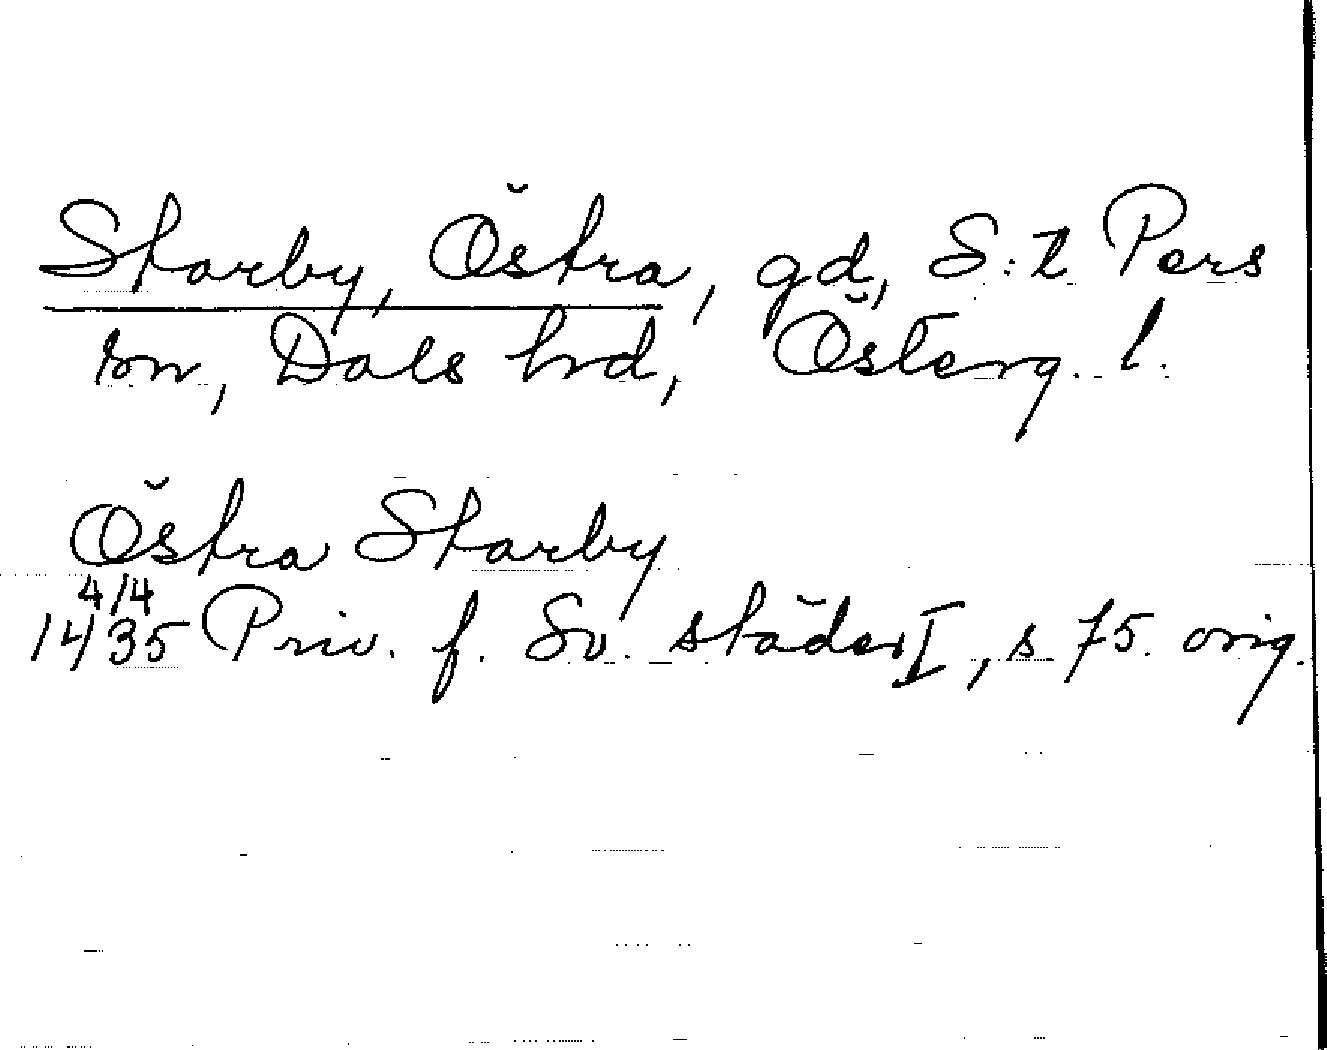 Starby, Östra, gd, S:t Pers
sn, Dals hd, Österg. l.
Östra Starby
4/4
1435 Priv. f. Sv. städer I, s 75. orig.